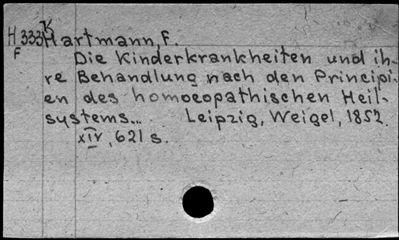 K
H 333 Hartmann, F.
F
Die Kinderkrankheiten und ih-
re Behandlung nach den Principi-
en des homoeopathischen Heil-
systems... Leipzig, Weigel, 1852.
XIV, 621 s.